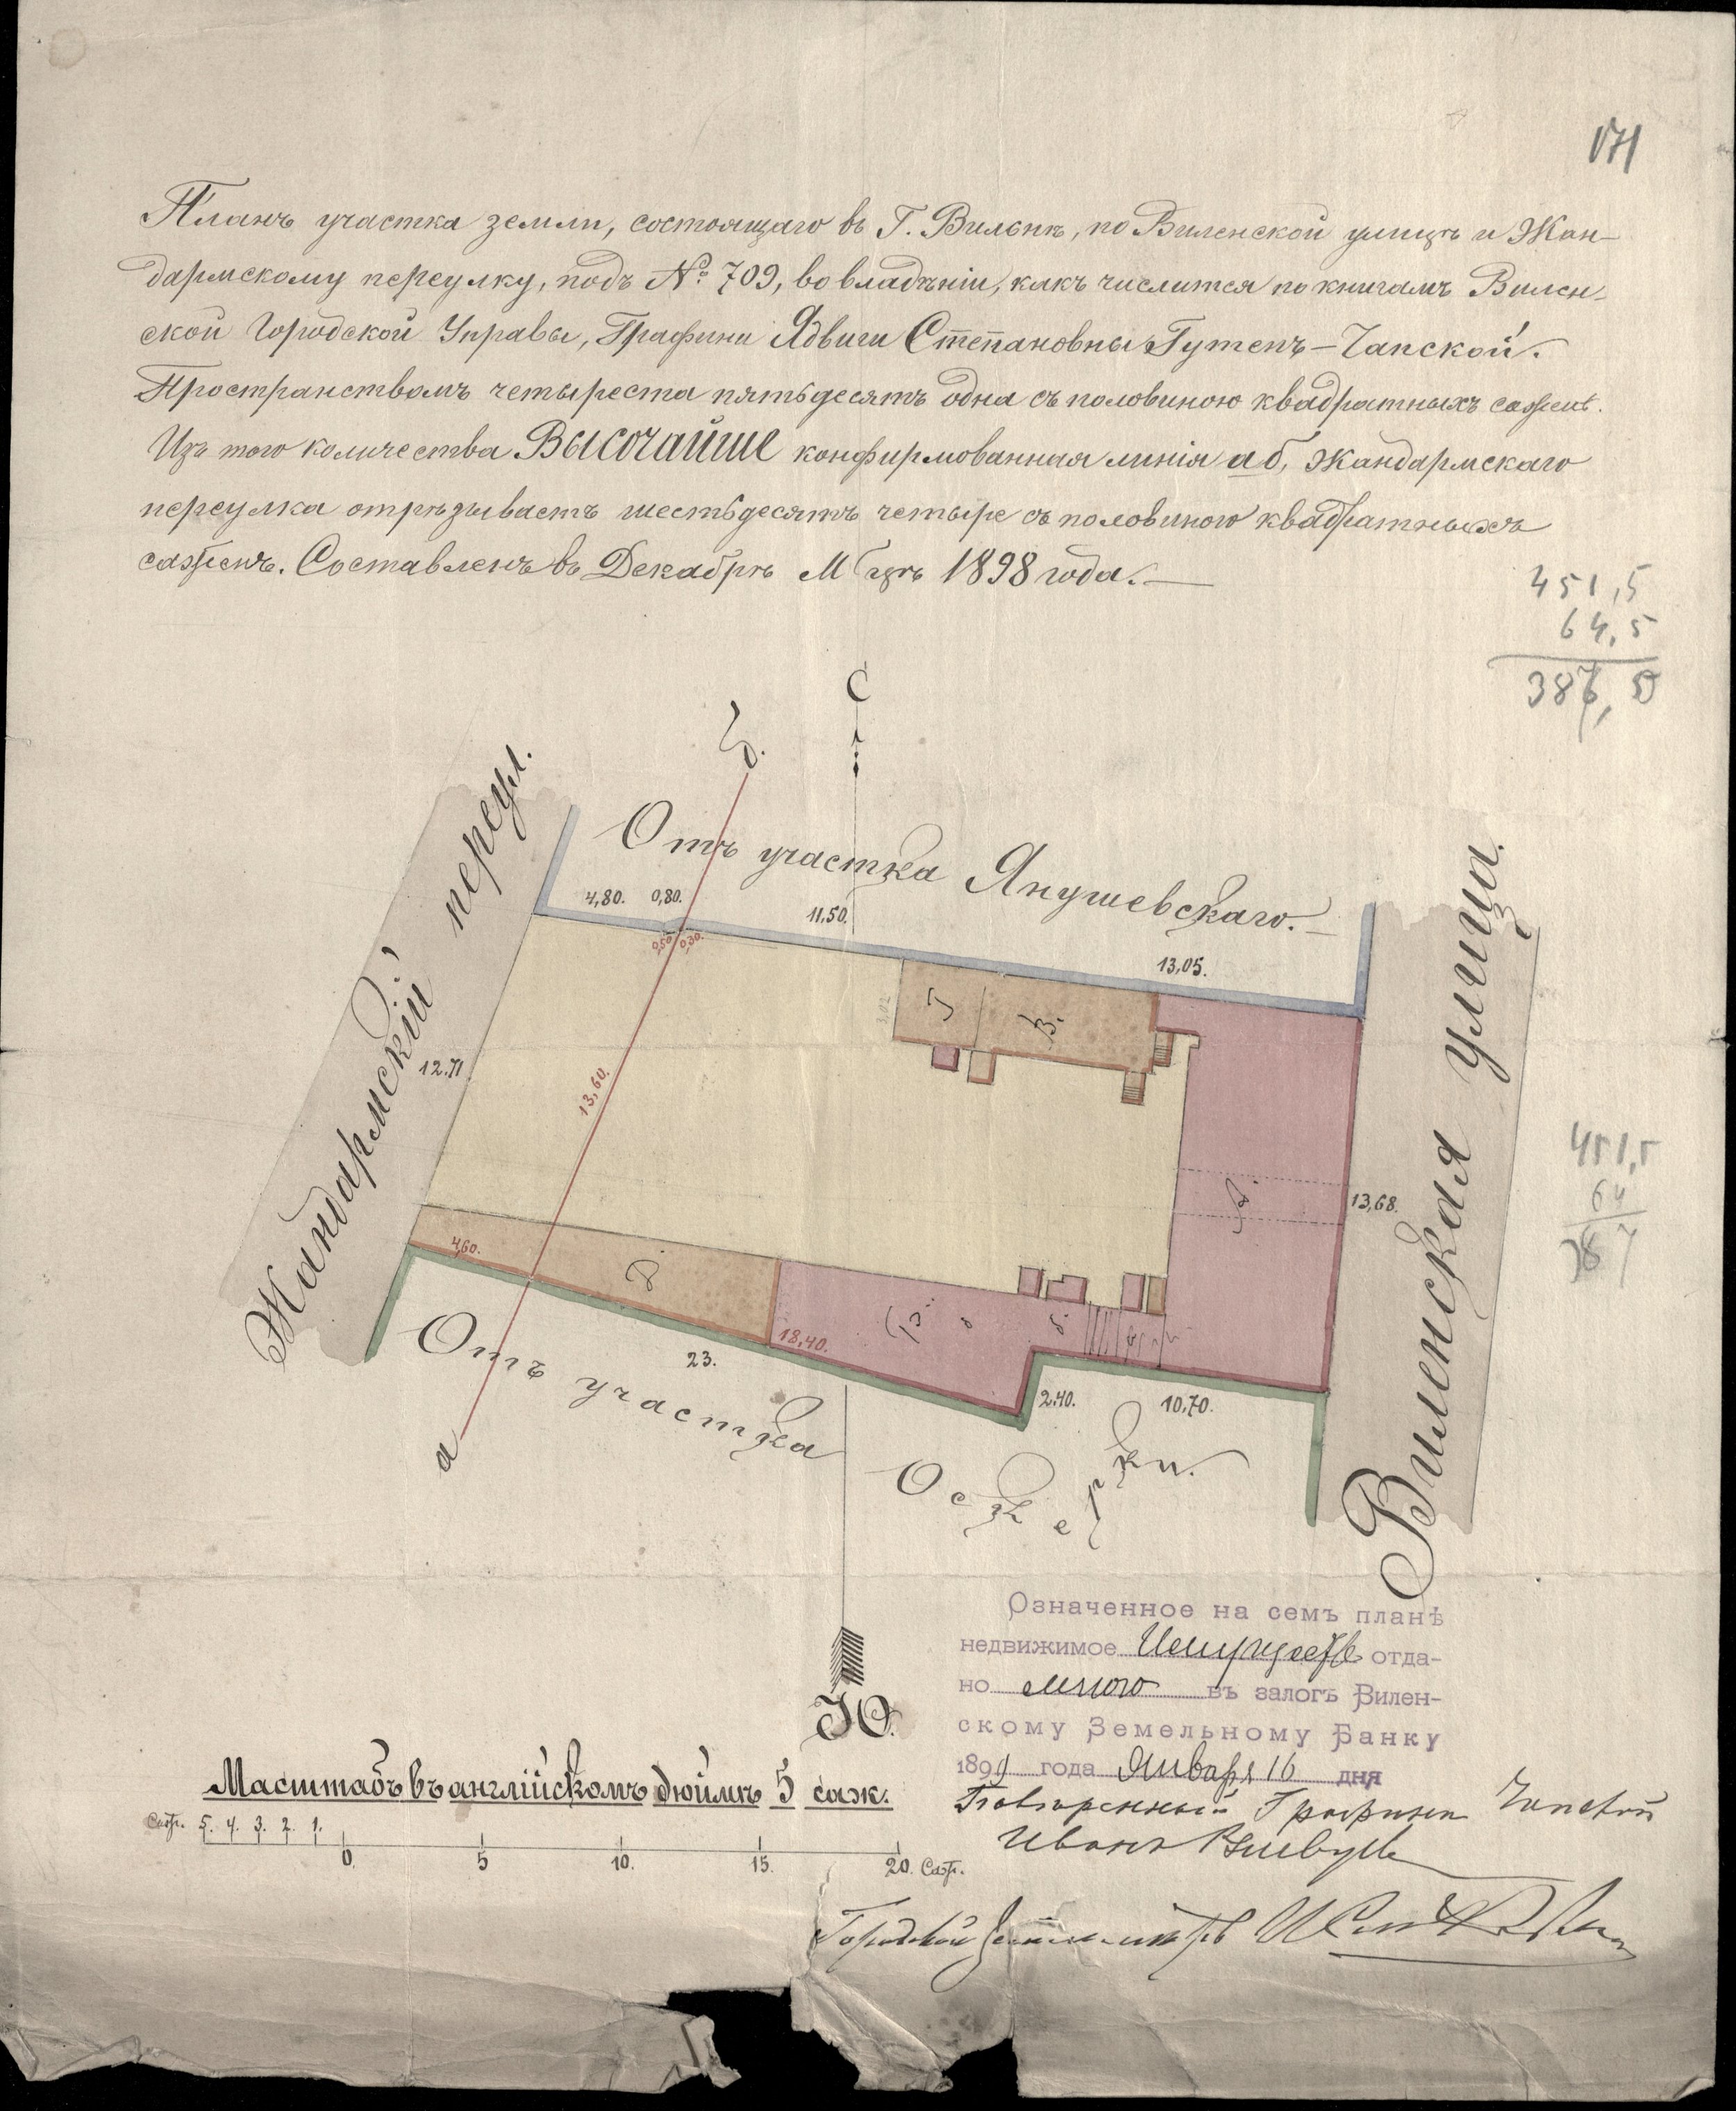 171
Планъ участка земли, состоящаго въ Г. Вильнѣ, по Виленской улицѣ и Жан-
дармскому переулку, подъ № 709, во владѣніи, какъ числится по книгамъ Вилен-
ской Городской Управы, Графини Ядвиги Степановны Гутенъ-Чапской.
Пространствомъ четыреста пятьдесятъ одна съ половиною квадратныхъ сажень.
Изъ того количества Высочайше конфирмованная линія аб, Жандармскаго
переулка отрѣзываетъ шестьдесятъ четыре съ половиною квадратныхъ
сажень. Составленъ въ Декабрѣ Мѣсяцѣ 1898 года.
451,5
64,5
387,0
С
б.
Жандармскій переул.
Отъ участка Янушевскаго.
4,80. 0,80.
11,50.
13,05.
0,50
0,30.
3,02
Г
В.
12.71
13,60.
А.
13,68.
Виленская улица.
451,5
64
387
4,60.
Д.
Б.
18,40.
23.
2.40.
10,70.
а
Отъ участка Оскерки.
Ю.
Означенное на семъ планѣ
недвижимое Имущество отда-
но мною въ залогъ Вилен-
скому Земельному Банку
1899 года Января 16 дня
Повѣренный Графини Чапской
Иванъ
Масштабъ въ англійскомъ дюймѣ 5 саж.
Саж. 5. 4. 3. 2. 1.
0. 5 10. 15. 20. Саж.
Городской Землемѣръ